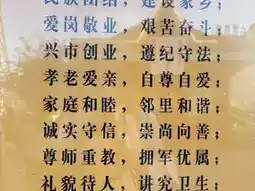 民族团结，建设家乡；
爱岗敬业，艰苦奋斗；
兴市创业，遵纪守法；
孝老爱亲，自尊自爱；
家庭和睦，邻里和谐；
诚实守信，崇尚向善；
尊师重教，拥军优属；
礼貌待人，讲究卫生；